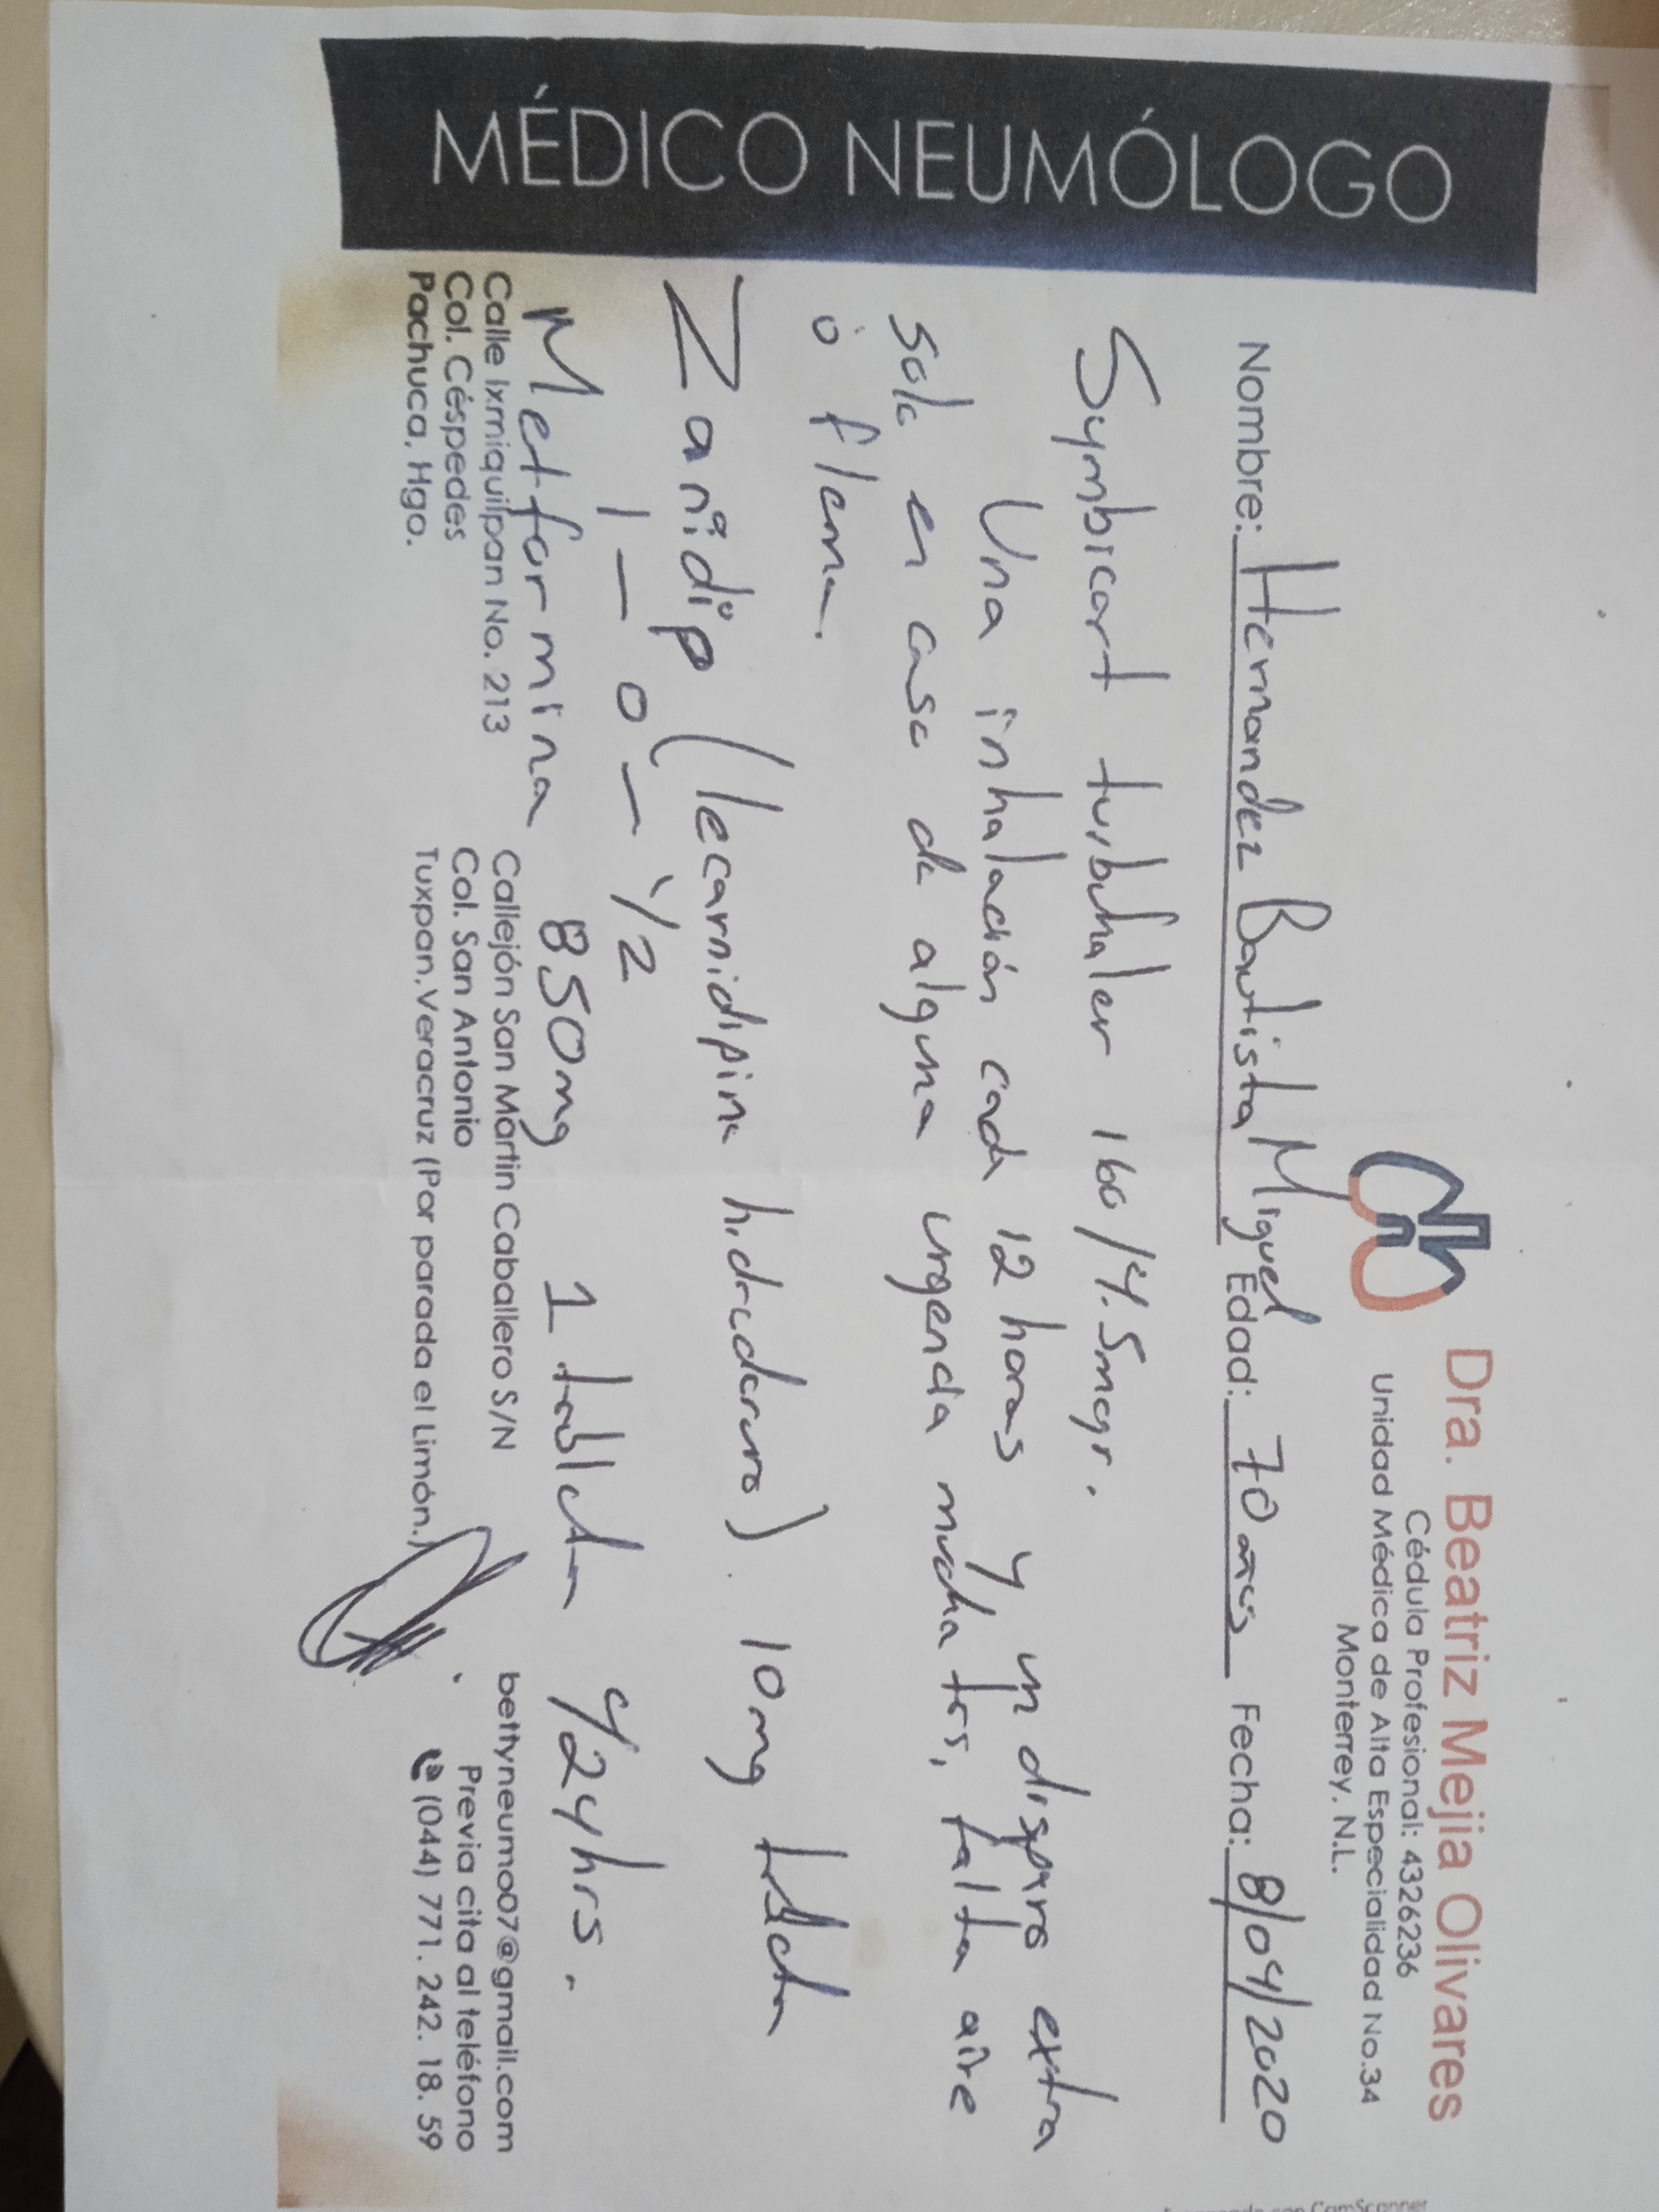 MÉDICO NEUMÓLOGO
Dra. Beatriz Mejia Olivares
Cédula Profesional: 4326236
Unidad Médica de Alta Especialidad No.34
Monterrey, N.L.
Nombre: Hernandez Bautista Miguel Edad: 70 años Fecha: 8/04/2020
Symbicort turbuhaler 160/4.5mcgr.
Una inhalación cada 12 horas y un disparo extra
solo en caso de alguna urgencia mucha tos, falta aire
ó flema.
Zanidip (lecarnidipina hidrocloruro). 10mg tableta
1 — 0 — 1/2
Metformina 850mg 1 tableta c/24hrs.
Calle Ixmiquilpan No. 213
Col. Céspedes
Pachuca, Hgo.
Callejón San Martin Caballero S/N
Col. San Antonio
Tuxpan, Veracruz (Por parada el Limón.)
bettyneumo07@gmail.com
Previa cita al teléfono
(044) 771. 242. 18. 59